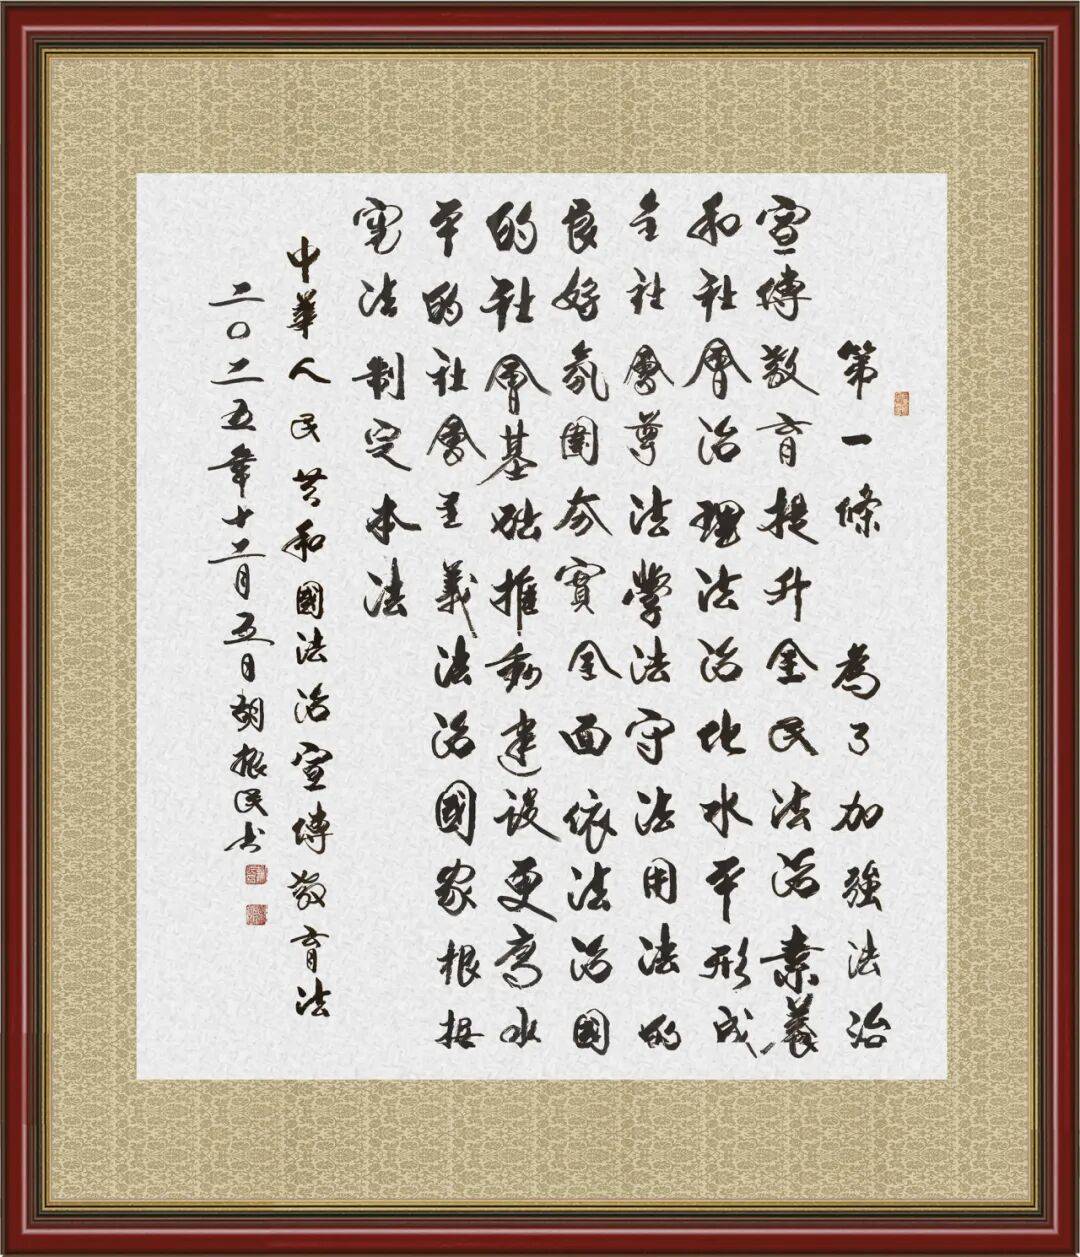 第一條 為了加強法治
宣傳教育提升全民法治素養
和社會治理法治化水平形成
全社會尊法學法守法用法的
良好氛圍夯實全面依法治國
的社會基础推動建設更高水
平的社會主義法治國家根据
憲法制定本法
中華人民共和國法治宣傳教育法
二〇二五年十二月五日胡振民书